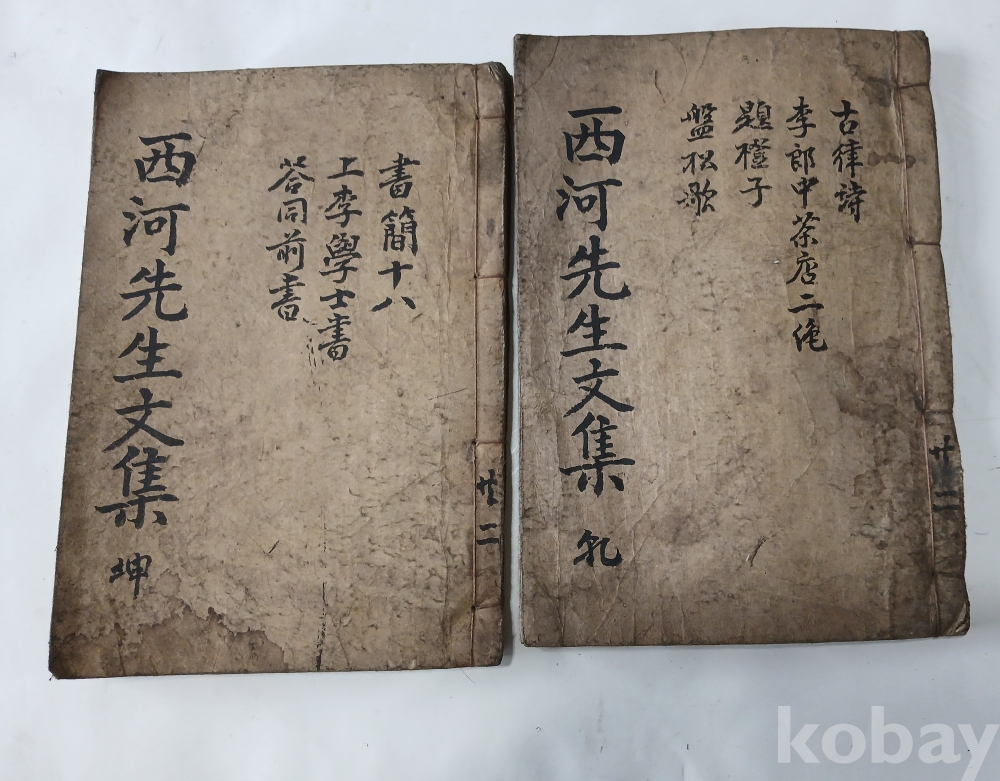 古律詩
李郎中茶店二絶
題橙子
盤松歌
西河先生文集 乹
共二
書簡十八
上李學士書
答同前書
西河先生文集 坤
共二
kobay